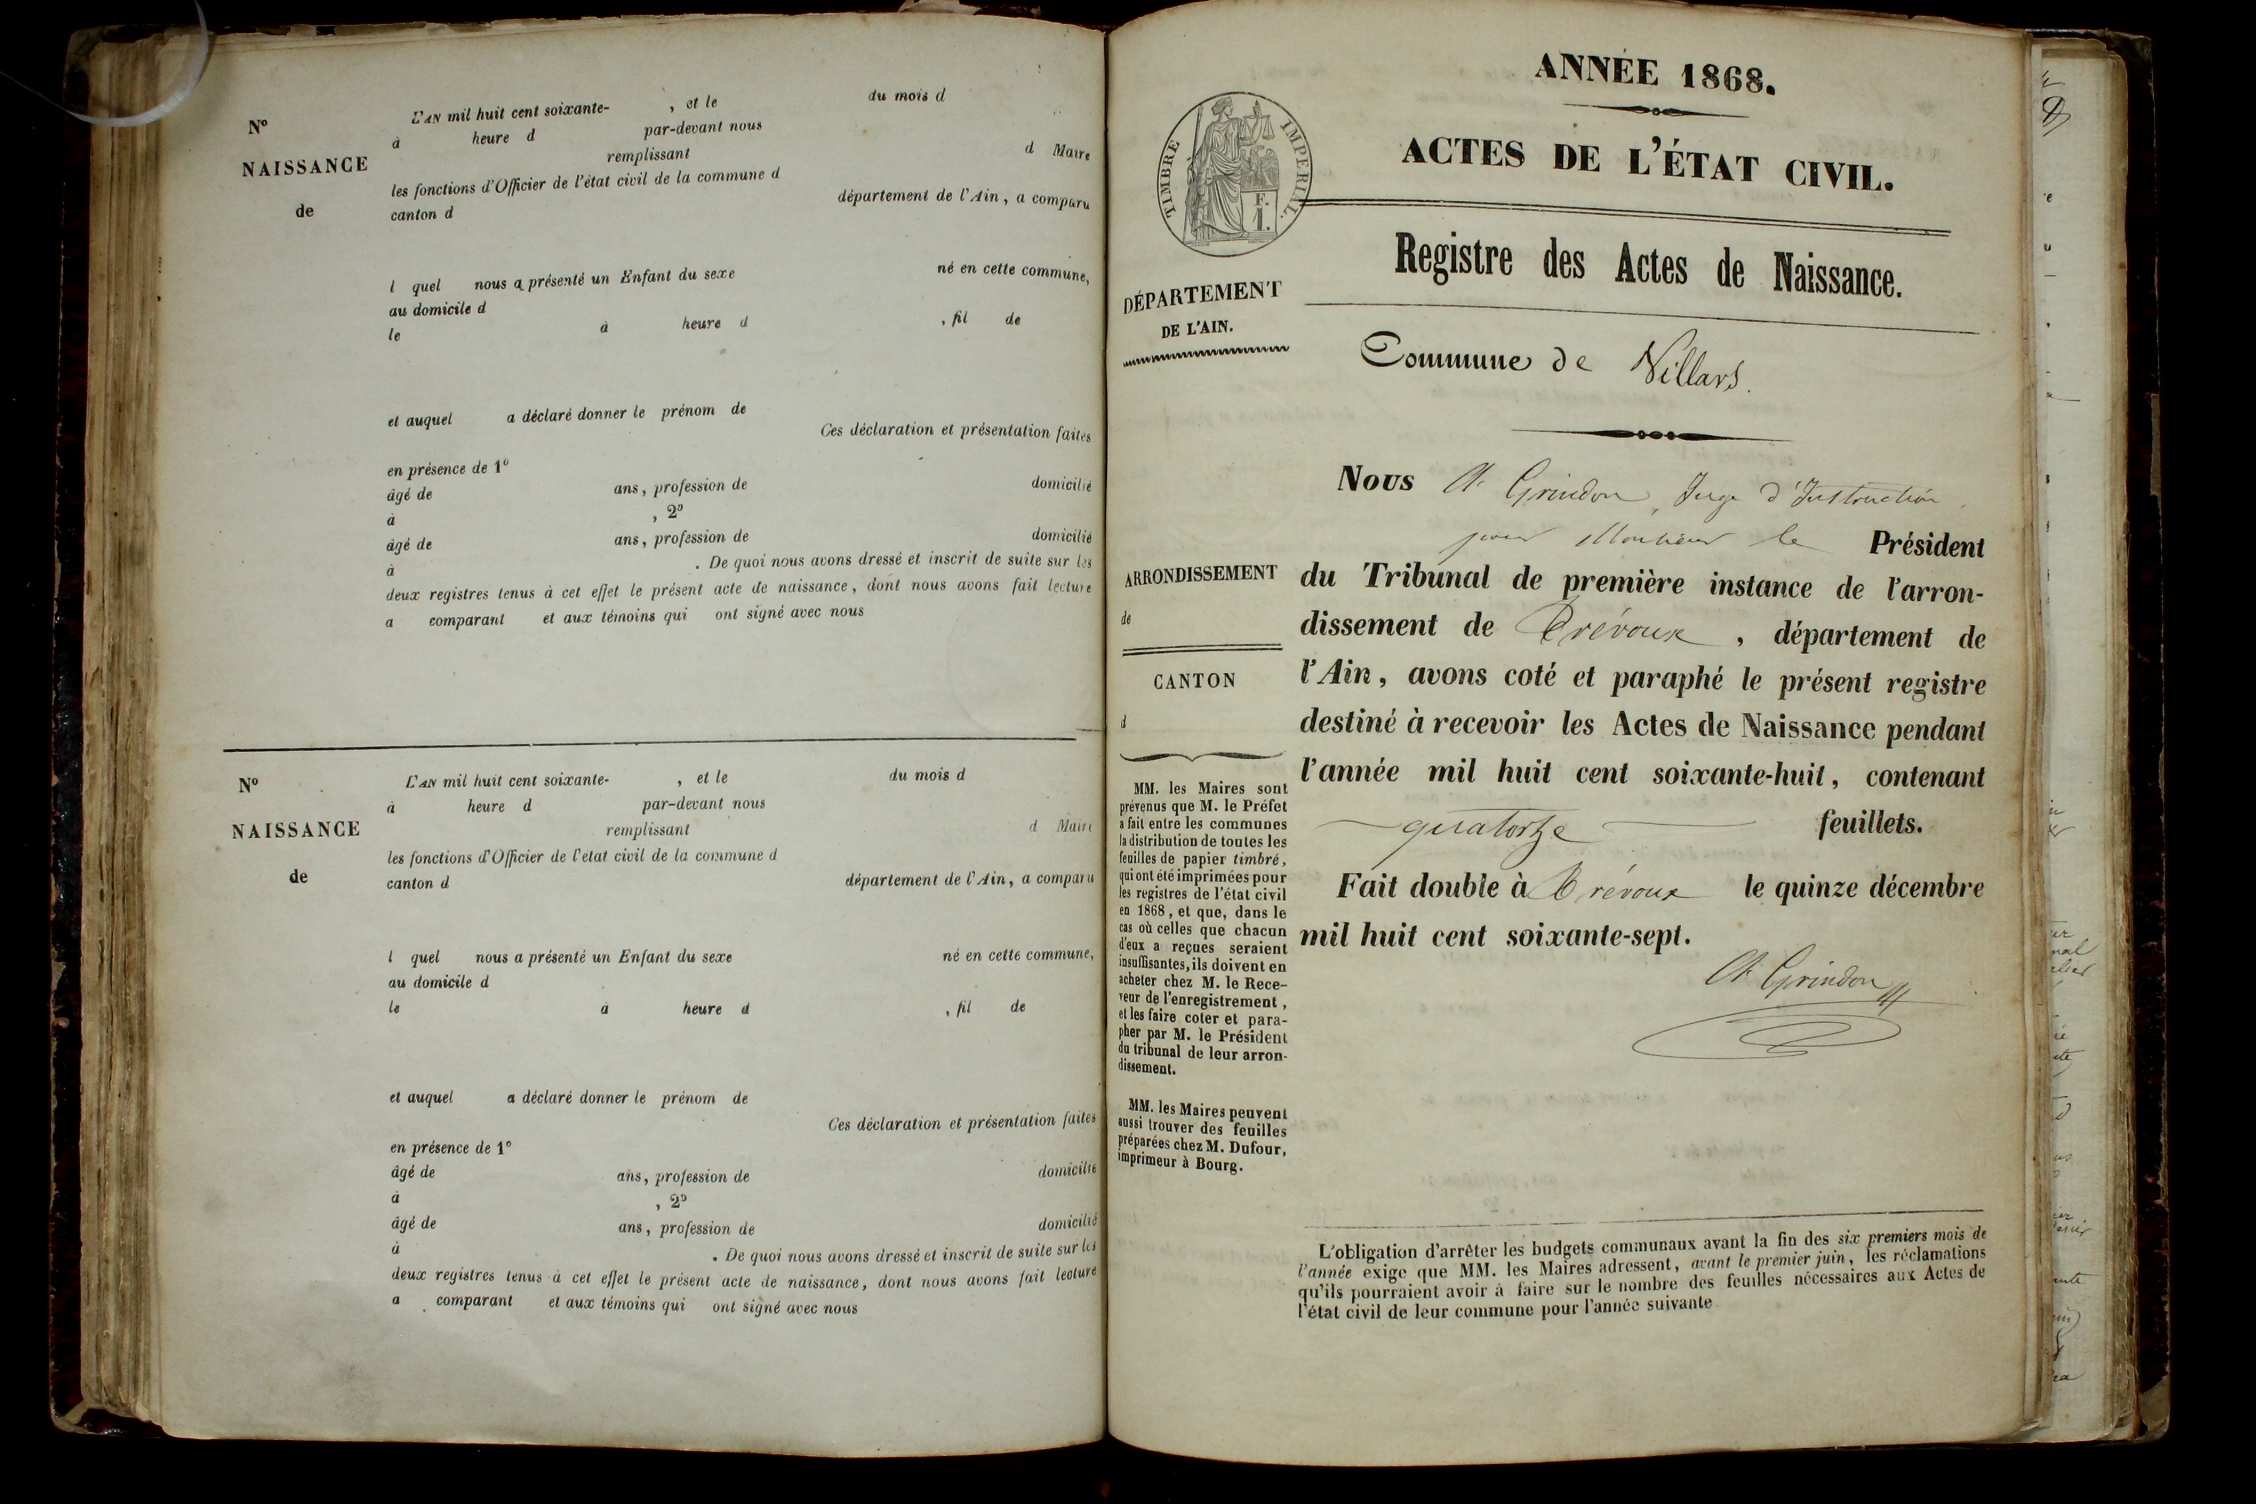 L'AN mil huit cent soixante- , et le du mois d
Nº
à heure d par-devant nous
remplissant d Maire
NAISSANCE
les fonctions d'Officier de l'état civil de la commune d
de
canton d département de l'Ain, a comparu
l quel nous a présenté un Enfant du sexe né en cette commune,
au domicile d
le à heure d , fil de
et auquel a déclaré donner le prénom de
Ces déclaration et présentation faites
en présence de 1º
âgé de ans, profession de domicilié
à , 2º
âgé de ans, profession de domicilié
à . De quoi nous avons dressé et inscrit de suite sur les
deux registres tenus à cet effet le présent acte de naissance, dont nous avons fait lecture
a comparant et aux témoins qui ont signé avec nous
Nº
L'AN mil huit cent soixante- , et le du mois d
à heure d par-devant nous
NAISSANCE
remplissant d Maire
les fonctions d'Officier de l'etat civil de la commune d
de
canton d département de l'Ain, a comparu
l quel nous a présenté un Enfant du sexe né en cette commune,
au domicile d
le à heure d , fil de
et auquel a déclaré donner le prénom de
Ces déclaration et présentation faites
en présence de 1º
âgé de ans, profession de domicilié
à , 2º
âgé de ans, profession de domicilié
à . De quoi nous avons dressé et inscrit de suite sur les
deux registres tenus à cet effet le présent acte de naissance, dont nous avons fait lecture
a comparant et aux témoins qui ont signé avec nous
ANNÉE 1868.
TIMBRE IMPERIAL.
F.
1.
ACTES DE L'ÉTAT CIVIL.
Registre des Actes de Naissance.
DÉPARTEMENT
DE L'AIN.
Commune de Villars.
Nous Ch. Grindon, Juge d'Instruction,
pour Monsieur le Président
du Tribunal de première instance de l'arron-
dissement de Trévoux , département de
l'Ain, avons coté et paraphé le présent registre
destiné à recevoir les Actes de Naissance pendant
l'année mil huit cent soixante-huit, contenant
quatorze feuillets.
Fait double à Trévoux le quinze décembre
mil huit cent soixante-sept.
Ch. Grindon
ARRONDISSEMENT
de
CANTON
d
MM. les Maires sont
prévenus que M. le Préfet
a fait entre les communes
la distribution de toutes les
feuilles de papier timbré,
qui ont été imprimées pour
les registres de l'état civil
en 1868, et que, dans le
cas où celles que chacun
d'eux a reçues seraient
insuffisantes, ils doivent en
acheter chez M. le Rece-
veur de l'enregistrement,
et les faire coter et para-
pher par M. le Président
du tribunal de leur arron-
dissement.
MM. les Maires peuvent
aussi trouver des feuilles
préparées chez M. Dufour,
imprimeur à Bourg.
L'obligation d'arrêter les budgets communaux avant la fin des six premiers mois de
l'année exige que MM. les Maires adressent, avant le premier juin, les réclamations
qu'ils pourraient avoir à faire sur le nombre des feuilles nécessaires aux Actes de
l'état civil de leur commune pour l'année suivante